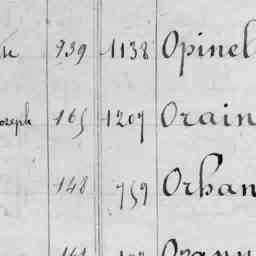 939 1138 Opinel
oseph 165 1207 Orain
148 759 Orhan